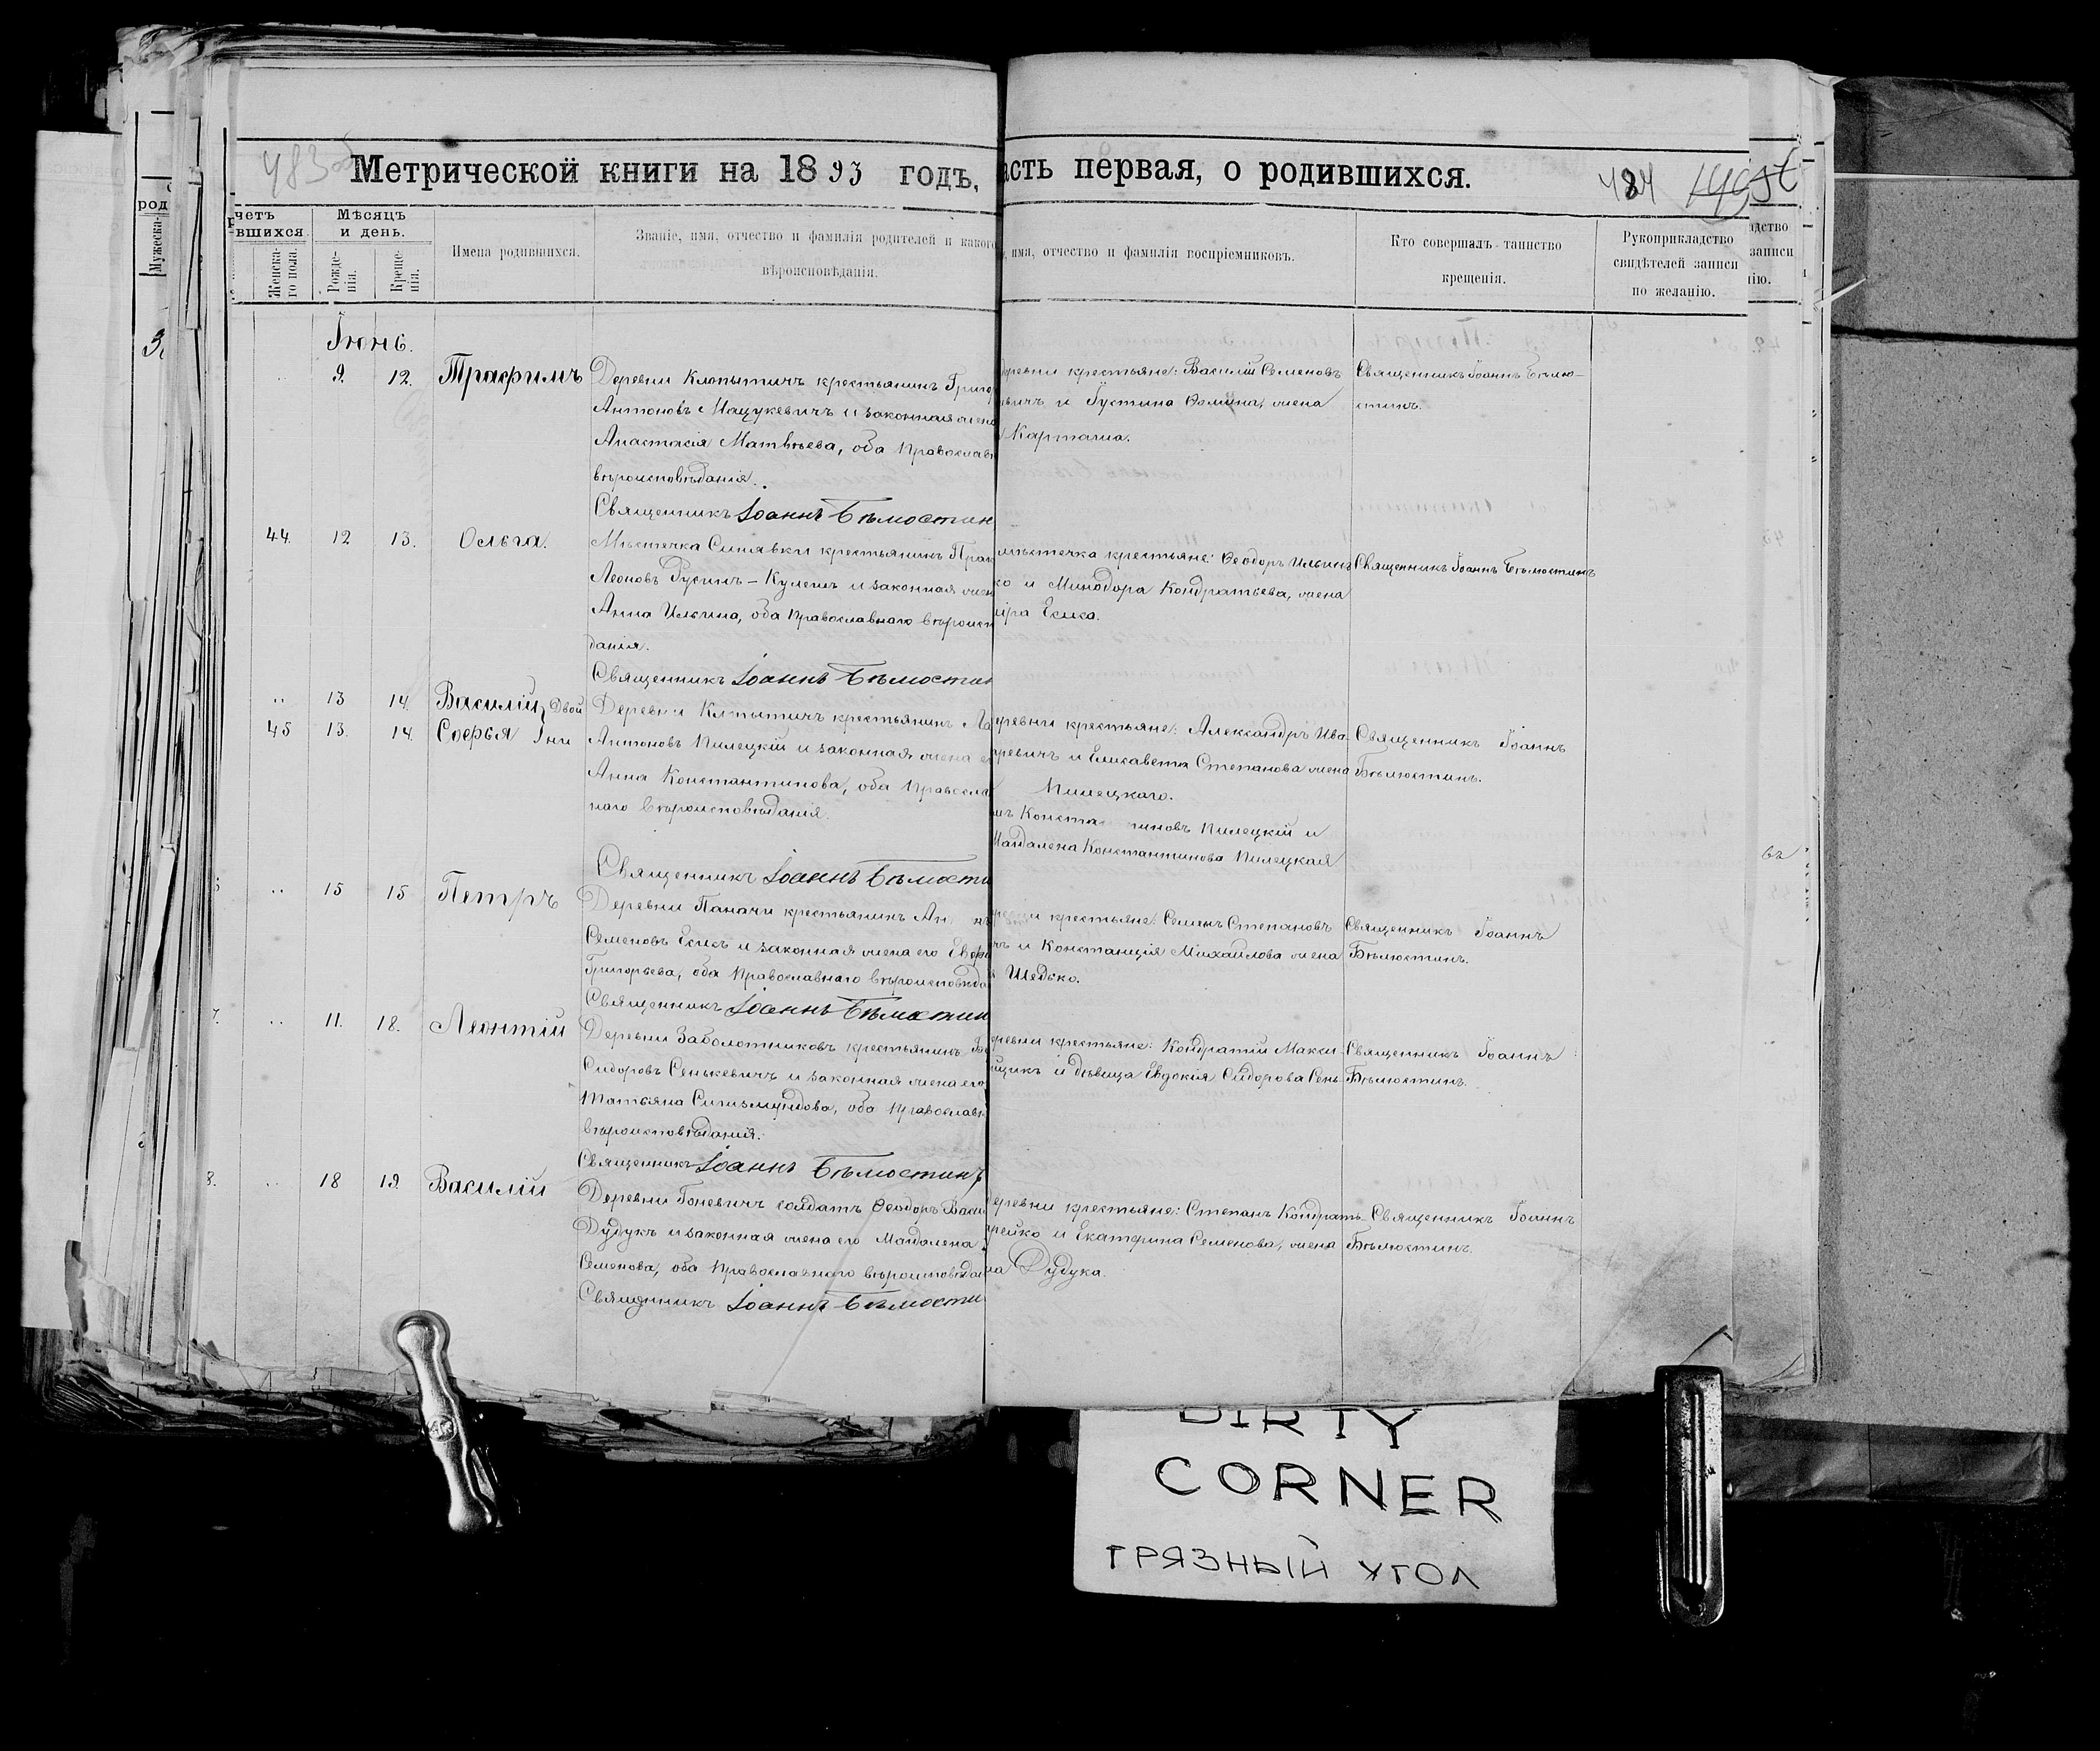 483 об
Метрической книги на 1893 годъ,
асть первая, о родившихся.
484
четъ
вшихся.
Женска-
го пола.
Мѣсяцъ
и день.
Рожде-
нія.
Креще-
нія.
Имена родившихся.
Званіе, имя, отчество и фамилія родителей и какого
вѣроисповѣданія.
имя, отчество и фамилія воспріемниковъ.
Кто совершалъ таинство
крещенія.
Рукоприкладство
свидѣтелей записи
по желанію.
род
Мужеска-
дство
записи
ію.
Іюнь.
9. 12. Трафимъ
Деревни Клопытичъ крестьянинъ Григо
Антоновъ Мацукевичъ и законная жена
Анастасія Матвѣева, оба Православн
вѣроисповѣданія.
Священникъ Іоаннъ Бѣлюстин
еревни крестьяне: Василій Семеновъ
вичъ и Іустина Ѳомина, жена
Карпаша.
Священникъ Іоаннъ Бѣлю-
стинъ.
44. 12 13. Ольга.
Мѣстечка Синявки крестьянинъ Прок
Леоновъ Русинъ-Кулешъ и законная жен
Анна Ильина, оба Православнаго вѣроисп
данія.
Священникъ Іоаннъ Бѣлюстин
мѣстечка крестьяне: Ѳеодоръ Ильинъ
ко и Минодора Кондратьева, жена
іра Есика.
Священникъ Іоаннъ Бѣлюстинъ
" 13 14. Василій
45 13. 14 Софья
Двой
ни
Деревни Клпытичъ крестьянинъ Ла
Антоновъ Пилецкій и законная жена е
Анна Константинова, оба Правосла
наго вѣроисповѣданія.
Священникъ Іоаннъ Бѣлюсти
еревни крестьяне: Александръ Ива-
аревичъ и Елисавета Степанова жена
Пилецкаго.
нъ Конста тиновъ Пилецкій и
Магдалена Константинова Пилецкая
Священникъ Іоаннъ
Бѣлюстинъ.
" 15 15 Петръ
Деревни Паначи крестьянинъ Ан нъ
Семеновъ Есикъ и законная жена его Евфр
Григорьева, оба Православнаго вѣроисповѣда
Священникъ Іоаннъ Бѣлюстин
и крестьяне: Семенъ Степановъ
чъ и Констанція Михайлова жена
Шедько.
Священникъ Іоаннъ
Бѣлюстинъ.
7. " 11. 18. Леонтій
Деревни Заболотниковъ крестьянинъ
Сидоровъ Сенькевичъ и законная жена его
Татьяна Сигизмундова, оба Православн
вѣроисповѣданія.
Священникъ Іоаннъ Бѣлюстинъ
еревни крестьяне: Кондратій Макси-
щикъ и дѣвица Евдокія Сидорова Сень-
Священникъ Іоаннъ
Бѣлюстинъ.
8. " 18 19 Василій
Деревни Гоневичъ солдатъ Ѳеодоръ Васи
Дудукъ и законная жена его Магдалена
Семенова, оба Православнаго вѣроисповѣдан
Священникъ Іоаннъ Бѣлюсти
еревни крестьяне: Степанъ Кондрать-
рейко и Екатерина Семенова, жена
на Дудука.
Священникъ Іоаннъ
Бѣлюстинъ.
DIRTY
CORNER
ГРЯЗНЫЙ УГОЛ